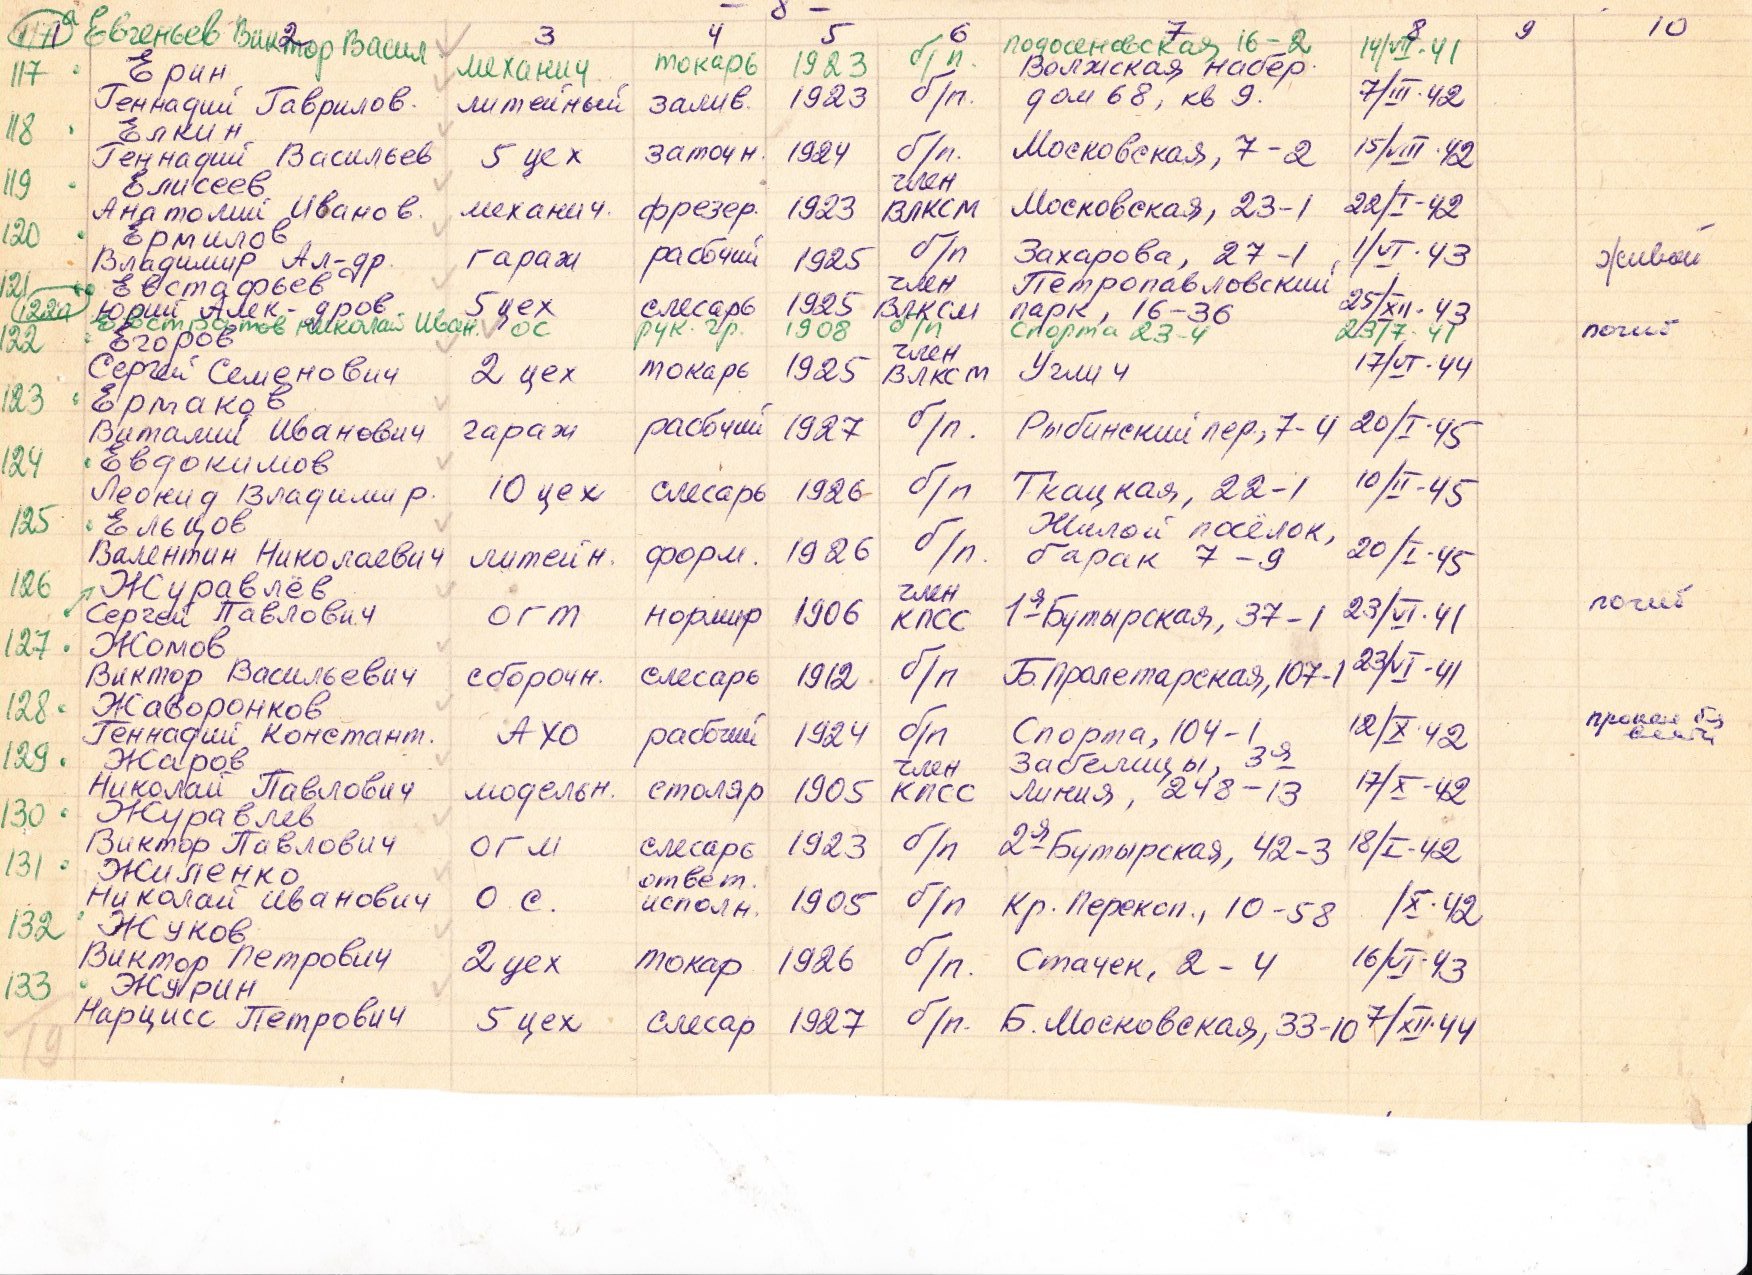 - 8 -
1 2 3 4 5 6 7 8 9 10
117а Евгеньев Виктор Васил механич токарь 1923 б/п. подосеновская 16-2 14/VII-41
117 Ерин Волжская набер.
Геннадий Гаврилов. литейный залив. 1923 б/п. дом 68, кв 9. 7/III-42
118 Елкин
Геннадий Васильев 5 цех заточн. 1924 б/п. Московская, 7-2 15/VIII-42
119 Елисеев член
Анатолий Иванов. механич. фрезер. 1923 ВЛКСМ Московская, 23-1 22/I-42
120 Ермилов
Владимир Ал-др. гараж рабочий 1925 б/п Захарова, 27-1, 1/VI-43 живой
121 Евстафьев член Петропавловский
Юрий Алек-дров 5 цех слесарь 1925 ВЛКСМ парк, 16-36 25/XII-43
122а Евстратов Николай Иван. ОС рук. гр. 1908 б/п Спорта 23-4 23/7-41 погиб
122 Егоров член
Сергей Семенович 2 цех токарь 1925 ВЛКСМ Углич 17/VI-44
123 Ермаков
Виталий Иванович гараж рабочий 1927 б/п. Рыбинский пер., 7-4 20/I-45
124 Евдокимов
Леонид Владимир. 10 цех слесарь 1926 б/п Ткацкая, 22-1 10/II-45
125 Ельцов Жилой посёлок,
Валентин Николаевич литейн. форм. 1926 б/п. барак 7-9 20/I-45
126 Журавлёв член
Сергей Павлович ОГТ нормир 1906 КПСС 1я Бутырская, 37-1 23/VI-41 погиб
127 Жомов
Виктор Васильевич сборочн. слесарь 1912 б/п Б.Пролетарская, 107-1 23/VI-41
128 Жаворонков
Геннадий Констант. АХО рабочий 1924 б/п Спорта, 104-1 12/X-42 пропал без вести
129 Жаров член Забелицы, 3я
Николай Павлович модельн. столяр 1905 КПСС линия, 248-13 17/X-42
130 Журавлев
Виктор Павлович ОГМ слесарь 1923 б/п 2я Бутырская, 42-3 18/I-42
131 Жиленко ответ.
Николай Иванович О.С. исполн. 1905 б/п Кр. Перекоп., 10-58 /X-42
132 Жуков
Виктор Петрович 2 цех токар 1926 б/п. Стачек, 2-4 16/VI-43
133 Журин
Нарцисс Петрович 5 цех слесар 1927 б/п. Б. Московская, 33-10 7/XII-44
19